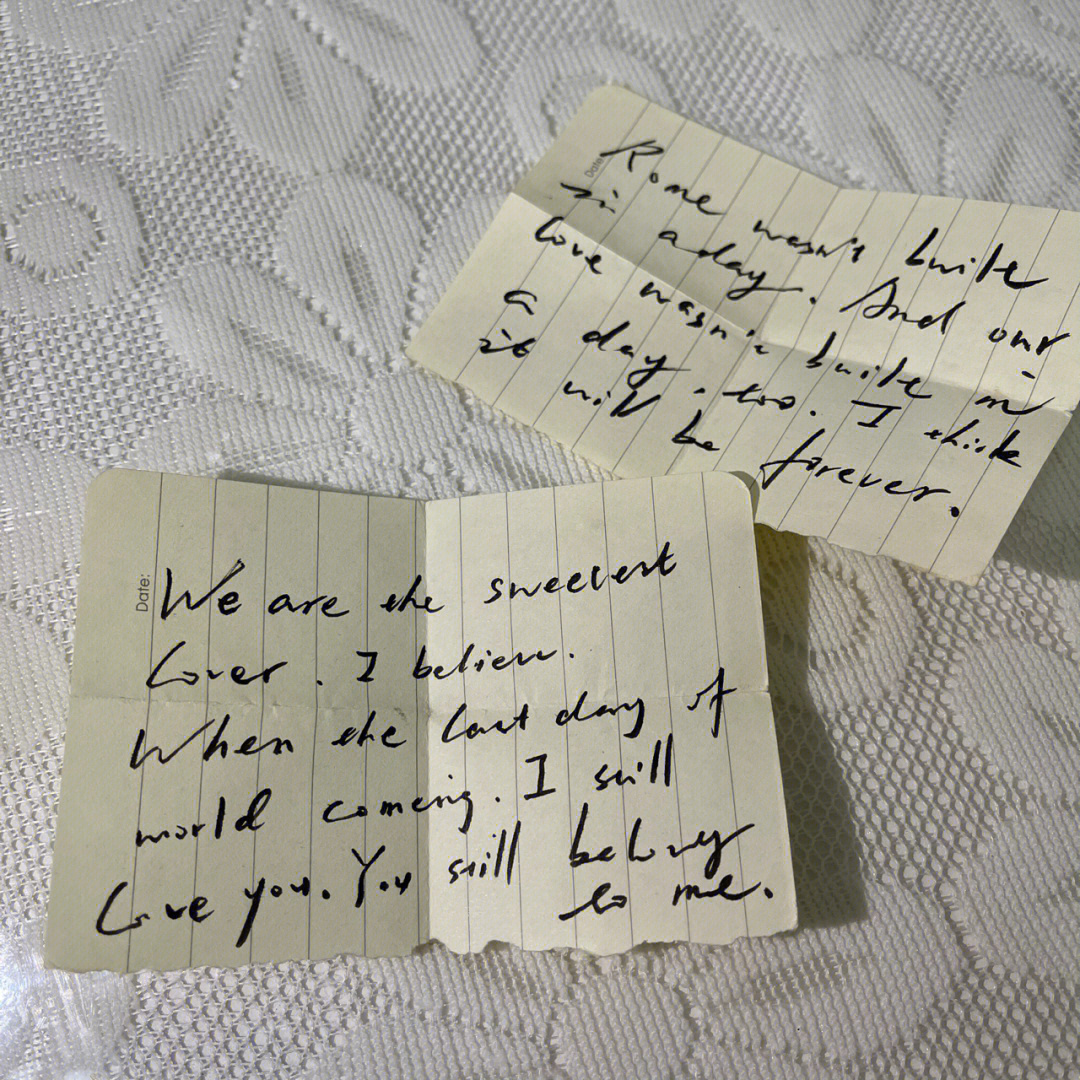 Date:
Rome wasn't built
in a day. And our
love wasn't built in
a day, too. I think
it will be forever.
Date:
We are the sweetest
Lover. I believe.
When the last day of
world coming. I still
Love you. You still belong
to me.